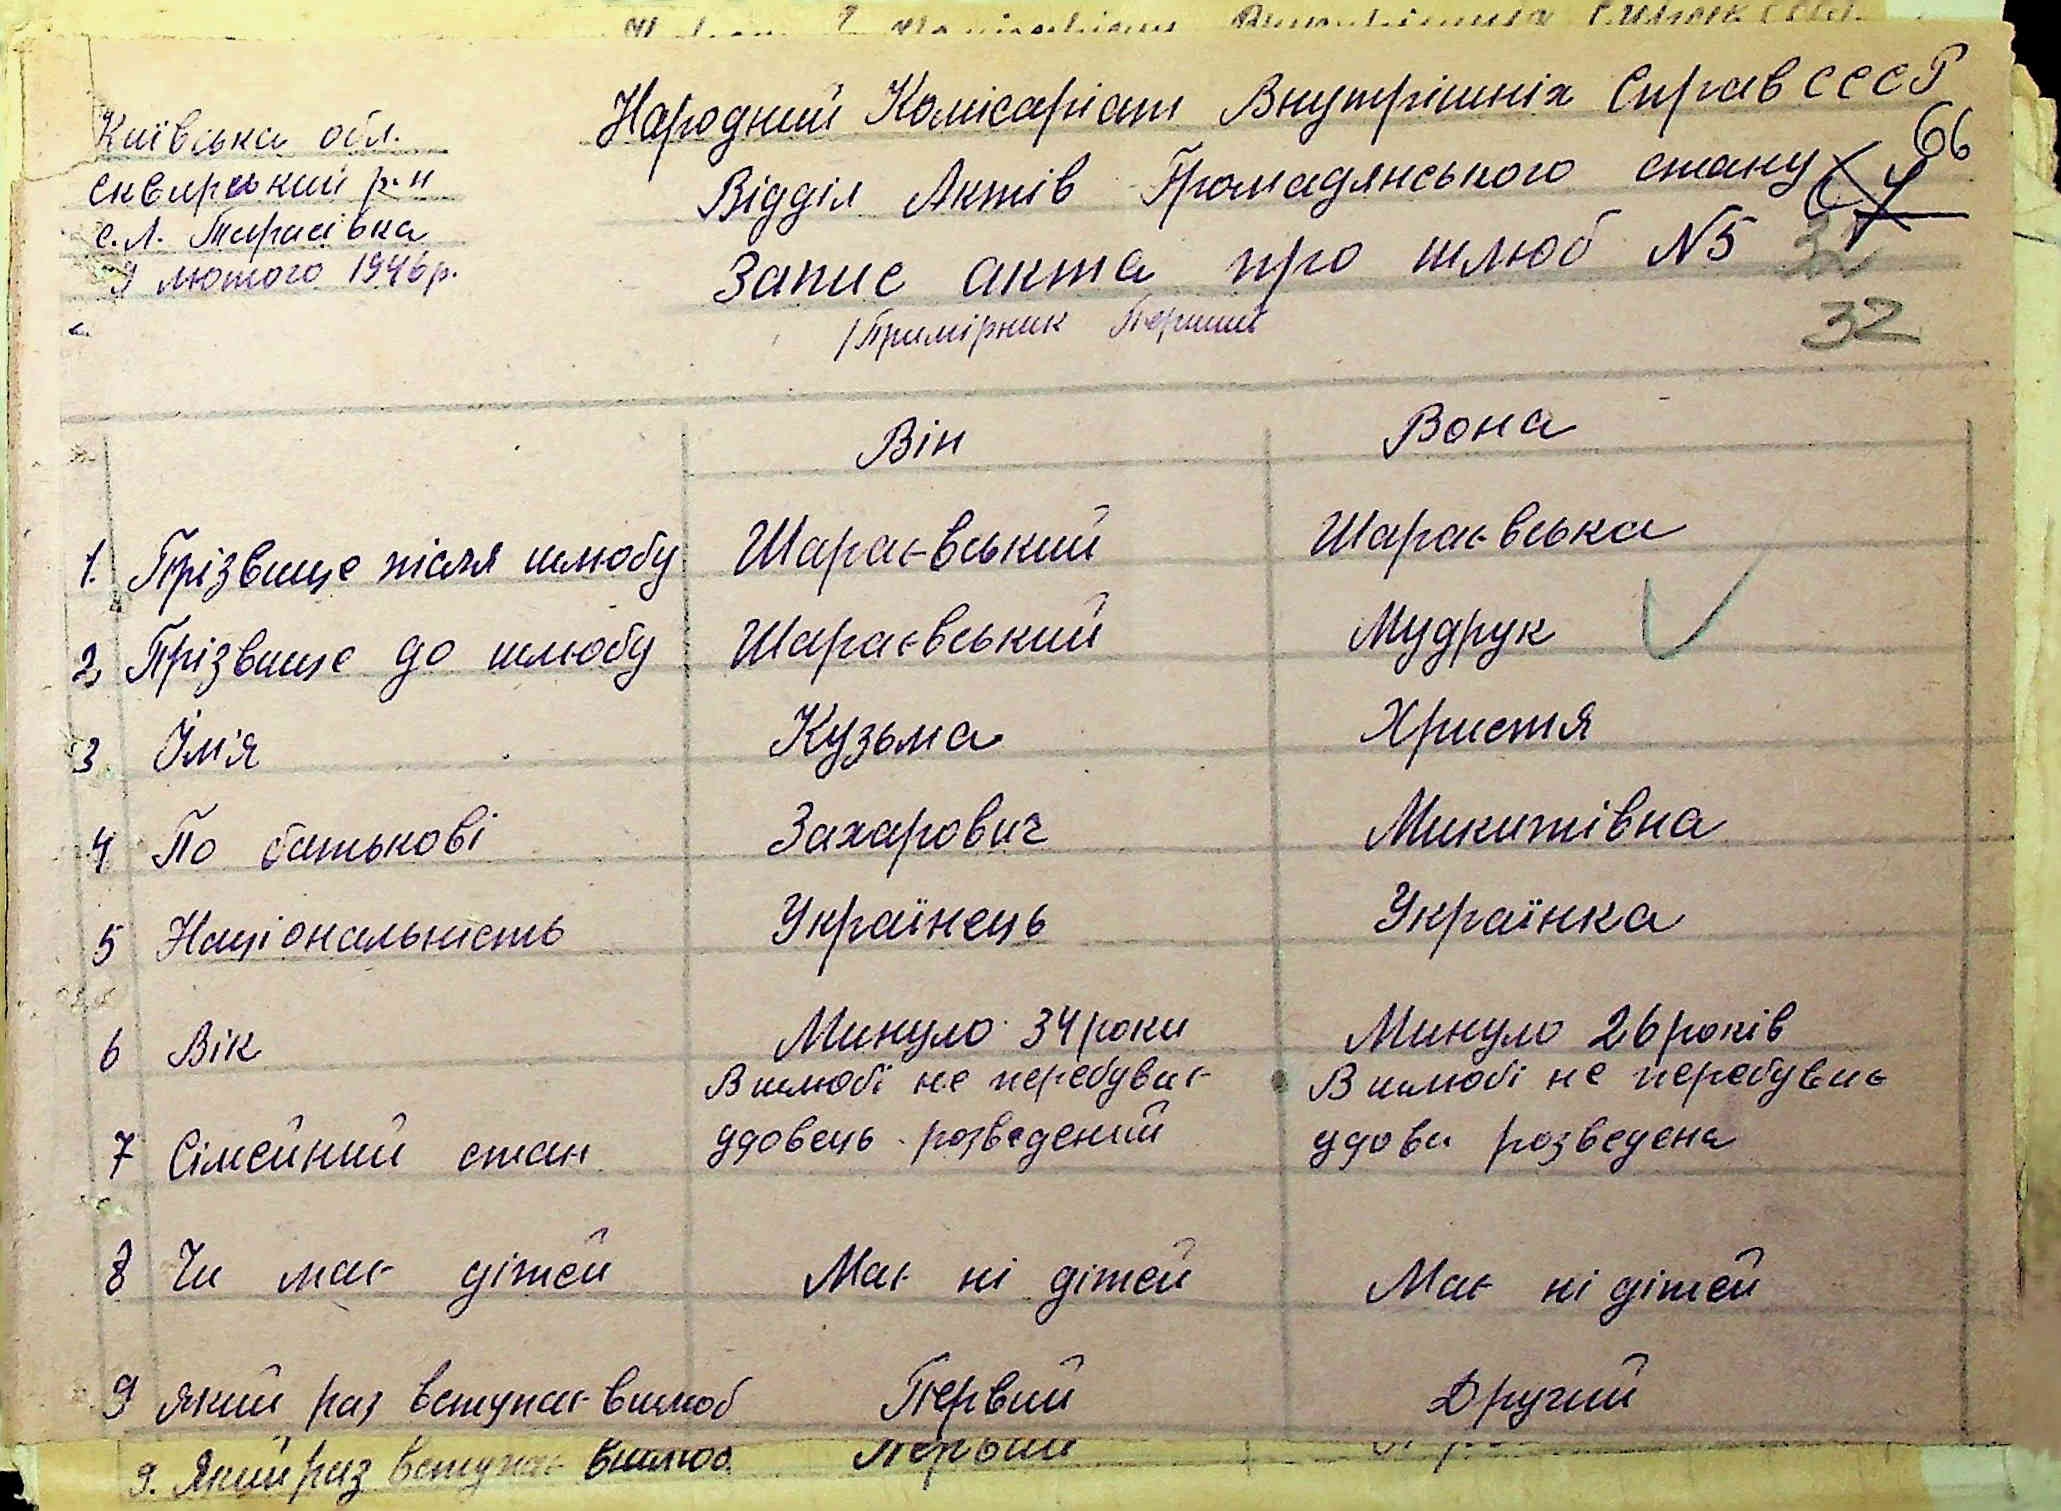 Народний Комісаріат Внутрішніх Справ СССР
Київська обл.
Сквирський р-н
с. Л. Тарасівка
9 лютого 1946 р.
Відділ Актів Громадянського стану
66
Запис акта про шлюб N5
32
/Примірник Перший
Він Вона
1. Прізвище після шлюбу Шараєвський Шараєвська
2 Прізвище до шлюбу Шараєвський Мудрук
3 Імʼя Кузьма Христя
4 По батькові Захарович Микитівна
5 Національність Українець Українка
6 Вік Минуло 34 роки Минуло 26 років
В шлюбі не перебуває В шлюбі не перебуває
7 Сімейний стан удовець розведений удова розведена
8 Чи має дітей Має ні дітей Має ні дітей
9 який раз вступає вшлюб Первий Другий
9. Який раз вступає вшлюб Первий